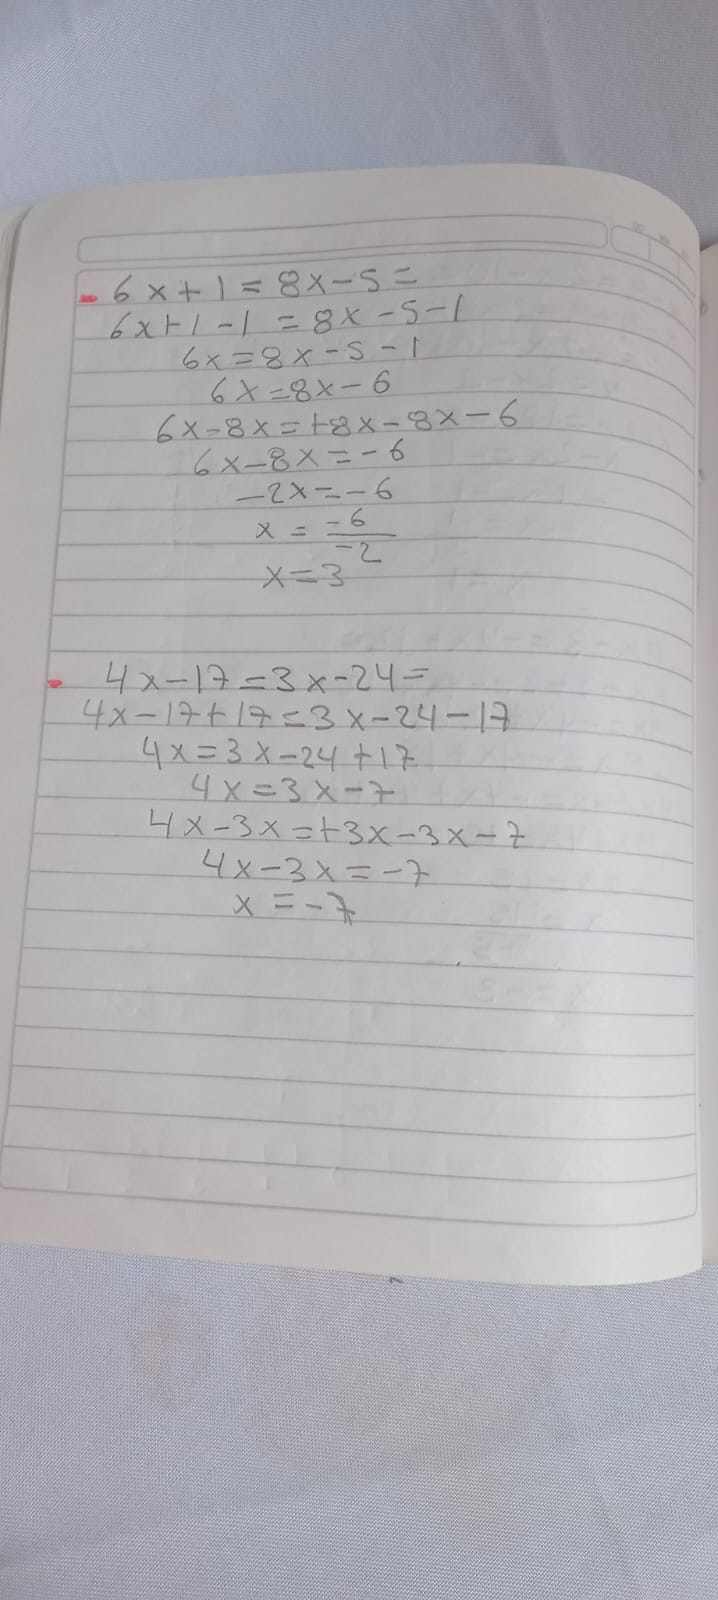 - 6x+1=8x-5=
6x+1-1=8x-5-1
6x=8x-5-1
6x=8x-6
6x-8x=+8x-8x-6
6x-8x=-6
-2x=-6
x=-6/-2
x=3
- 4x-17=3x-24=
4x-17+17=3x-24-17
4x=3x-24+17
4x=3x-7
4x-3x=+3x-3x-7
4x-3x=-7
x=-7